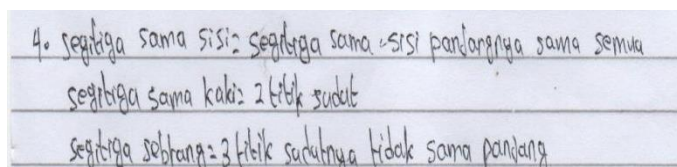 4. segitiga sama sisi= segitiga sama sisi panjangnya sama semua
segitiga sama kaki= 2 titik sudut
segitiga sebrang= 3 titik sudutnya tidak sama panjang